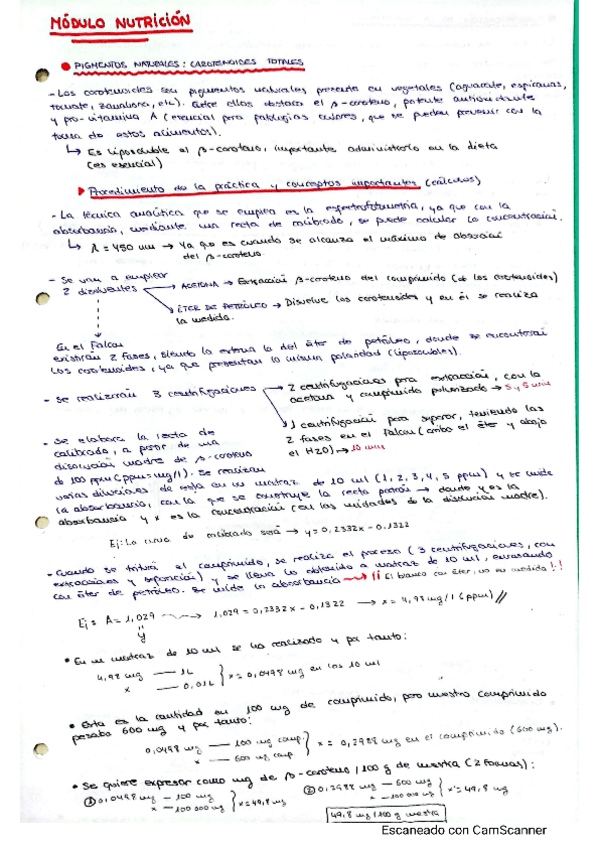 MÓDULO NUTRICIÓN
PIGMENTOS NATURALES: CAROTENOIDES TOTALES
- Los carotenoides son pigmentos naturales presente en vegetales (aguacate, espinacas,
tomate, zanahoria, etc). Entre ellos destaca el β-caroteno, potente antioxidante
y pro-vitamina A (esencial para patologías oculares, que se pueden prevenir con la
toma de estos alimentos).
↳ Es liposoluble el β-caroteno, importante administrarlo en la dieta
(es esencial)
Procedimiento de la práctica y conceptos importantes (cálculos)
- La técnica analítica que se emplea es la espectrofotometría, ya que con la
absorbancia, mediante una recta de calibrado, se puede calcular la concentración.
↳ λ = 450 nm → Ya que es cuando se alcanza el máximo de absorción
del β-caroteno.
- Se van a emplear
2 disolventes
→ ACETONA → Extracción β-caroteno del comprimido (de los carotenoides)
→ ÉTER DE PETRÓLEO → Disuelve los carotenoides y en él se realiza
la medida.
En el Falcon
existirán 2 fases, siendo la externa la del éter de petróleo, donde se encontrarán
los carotenoides, ya que presentan la misma polaridad (liposolubles).
- Se realizarán 3 centrifugaciones
→ 2 centrifugaciones para extracción, con la
acetona y comprimido pulverizado → 5 y 5 min
→ 1 centrifugación para separar, teniendo las
2 fases en el Falcon (arriba el éter y abajo
el H2O) → 10 min
- Se elabora la recta de
calibrado, a partir de una
disolución madre de β-caroteno
de 100 ppm (ppm=mg/l). Se realizan
varias diluciones de esta en un matraz de 10 ml (1, 2, 3, 4, 5 ppm) y se mide
la absorbancia, con la que se construye la recta patrón → donde y es la
absorbancia y x es la concentración (con las unidades de la disolución madre).
Ej: La curva de calibrado será → y = 0,2332x - 0,1322
- Cuando se tritura el comprimido, se realiza el proceso (3 centrifugaciones, con
extracciones y separación) y se lleva lo obtenido a matraz de 10 ml, enrasando
con éter de petróleo. Se mide la absorbancia → ¡¡ El blanco con éter, no en medida!!
Ej: A = 1,029 → 1,029 = 0,2332x - 0,1322 → x = 4,98 mg/l (ppm) //
y
• En un matraz de 10 ml se ha realizado y por tanto:
4,98 mg — 1L
x — 0,01L } x = 0,0498 mg en los 10 ml
• Esta es la cantidad en 100 mg de comprimido, pero nuestro comprimido
pesaba 600 mg y por tanto:
0,0498 mg — 100 mg comp.
x — 600 mg comp } x = 0,2988 mg en el comprimido (600 mg).
• Se quiere expresar como mg de β-caroteno / 100 g de muestra (2 formas):
① 0,0498 mg — 100 mg
x — 100 000 mg } x = 49,8 mg
② 0,2988 mg — 600 mg
x — 100 000 mg } x = 49,8 mg
49,8 mg/100 g muestra
Escaneado con CamScanner